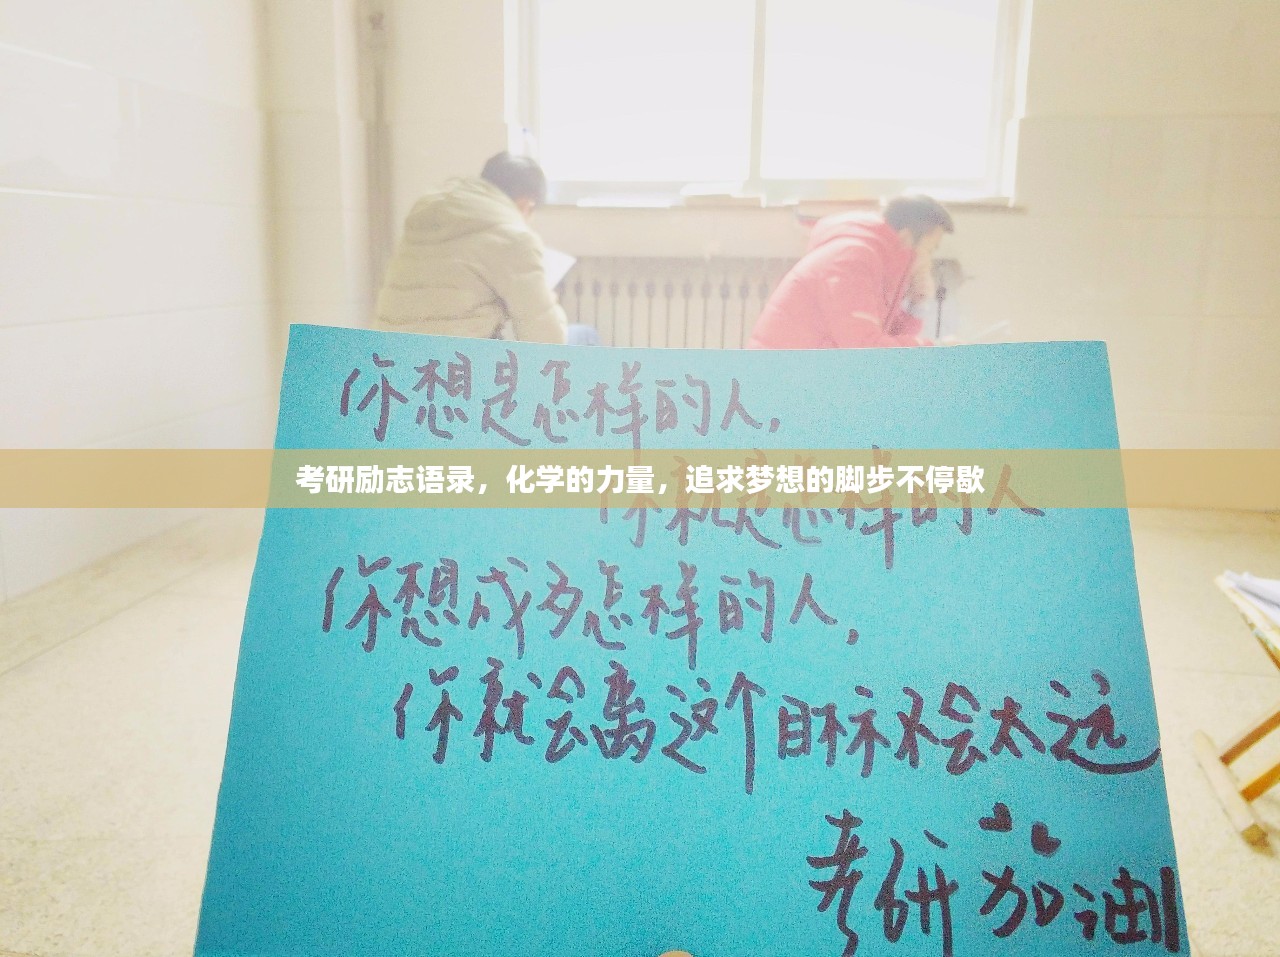 你想是怎样的人，
考研励志语录，化学的力量，追求梦想的脚步不停歇
你就是怎样的人
你想成为怎样的人，
你就会离这个目标不会太远
考研加油